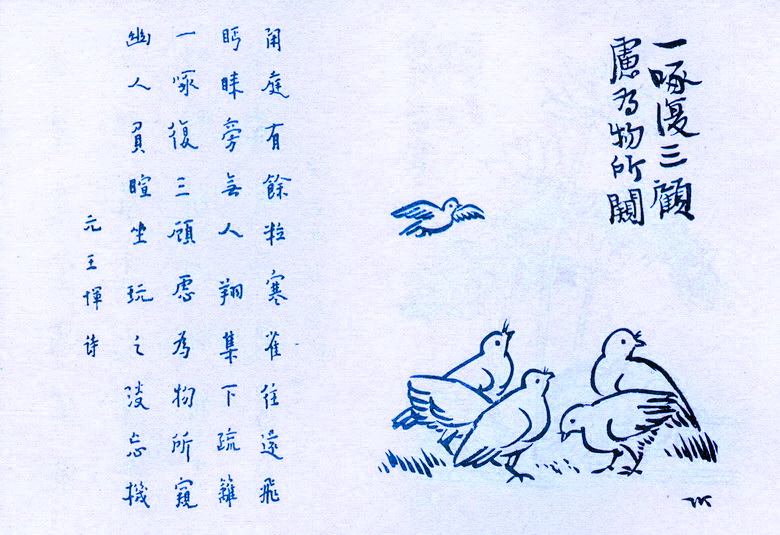 一啄復三顧
慮為物所闚
閑庭有餘粒寒雀往還飛
眄睐旁無人翔集下疏籬
一啄復三顧慮為物所窺
幽人負暄坐玩之淡忘機
元王惲诗